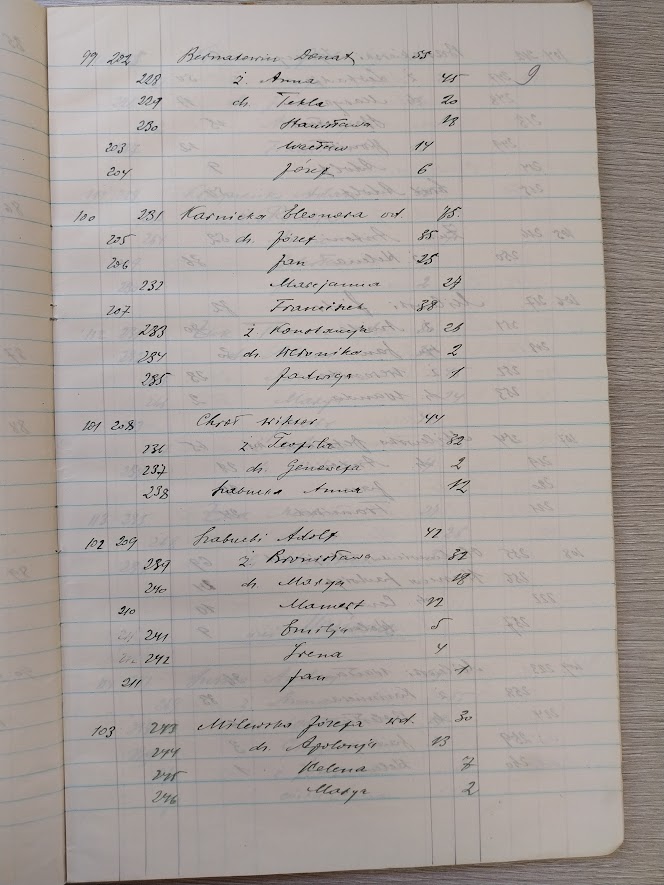 99 202 Bernatowicz Donat 55
9
228 ż. Anna 45
229 ch. Tekla 20
230 Stanisława 18
203 Wacław 14
204 Józef 6
100 231 Karnicka Eleonora wd. 75.
205 ch. Józef 35
206 Jan 25
232 Marcjanna 27
207 Franciszek 38
233 ż Konstancja 26
234 ch. Weronika 2
235 Jadwiga 1
101 208 Chroł Wiktor 44
236 ż Teofila 32
237 ch. Genowefa 2
238 Szabucka Anna 12
102 209 Szabucki Adolf 42
239 ż. Bronisława 32
240 ch. Marya 18
210 12
241 Emilja 5
242 Irena 4
211 Jan 1
103 243 Milewska Józefa wd. 30
244 ch. Apolonja 13
245 Helena 7
246 Marya 2